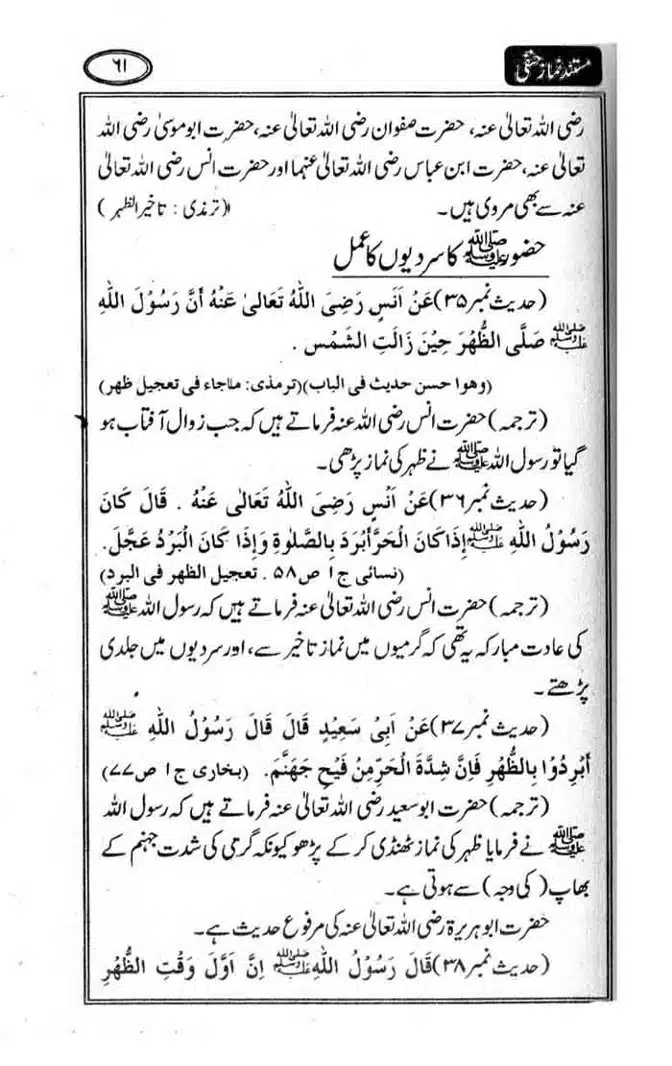 مستند نماز حنفی
۶۱
رضی اللہ تعالیٰ عنہ، حضرت صفوان رضی اللہ تعالیٰ عنہ، حضرت ابو موسیٰ رضی اللہ
تعالیٰ عنہ، حضرت ابن عباس رضی اللہ تعالیٰ عنہما اور حضرت انس رضی اللہ تعالیٰ
عنہ سے بھی مروی ہیں۔ (ترمذی : تاخیر الظہر)
حضور ﷺ کا سردیوں کا عمل
(حدیث نمبر ۳۵) عَنْ اَنَسٍ رَضِیَ اللّٰهُ تَعَالیٰ عَنْهُ اَنَّ رَسُوْلَ اللّٰهِ
ﷺ صَلَّی الظُّهْرَ حِیْنَ زَالَتِ الشَّمْسِ .
(وھوا حسن حدیث فی الباب) (ترمذی: ماجاء فی تعجیل ظھر)
(ترجمہ) حضرت انس رضی اللہ عنہ فرماتے ہیں کہ جب زوال آفتاب ہو
گیا تو رسول اللہ ﷺ نے ظہر کی نماز پڑھی۔
(حدیث نمبر ۳۶) عَنْ اَنَسٍ رَضِیَ اللّٰهُ تَعَالیٰ عَنْهُ . قَالَ كَانَ
رَسُوْلُ اللّٰهِ ﷺ اِذَا كَانَ الْحَرَّ اَبْرَدَ بِالصَّلٰوةِ وَاِذَا كَانَ الْبَرْدُ عَجَّلَ.
(نسائی ج ۱ ص ۵۸ . تعجیل الظھر فی البرد)
(ترجمہ) حضرت انس رضی اللہ تعالیٰ عنہ فرماتے ہیں کہ رسول اللہ ﷺ
کی عادت مبارکہ یہ تھی کہ گرمیوں میں نماز تاخیر سے، اور سردیوں میں جلدی
پڑھتے۔
(حدیث نمبر ۳۷) عَنْ اَبِیْ سَعِیْدٍ قَالَ قَالَ رَسُوْلُ اللّٰهِ ﷺ
اَبْرِدُوْا بِالظُّهْرِ فَاِنَّ شِدَّةَ الْحَرِّ مِنْ فَیْحِ جَهَنَّمَ. (بخاری ج ۱ ص ۷۷)
(ترجمہ) حضرت ابو سعید رضی اللہ تعالیٰ عنہ فرماتے ہیں کہ رسول اللہ
ﷺ نے فرمایا ظہر کی نماز ٹھنڈی کر کے پڑھو کیونکہ گرمی کی شدت جہنم کے
بھاپ (کی وجہ) سے ہوتی ہے۔
حضرت ابو ہریرۃ رضی اللہ تعالیٰ عنہ کی مرفوع حدیث ہے۔
(حدیث نمبر ۳۸) قَالَ رَسُوْلُ اللّٰهِ ﷺ اِنَّ اَوَّلَ وَقْتِ الظُّهْرِ